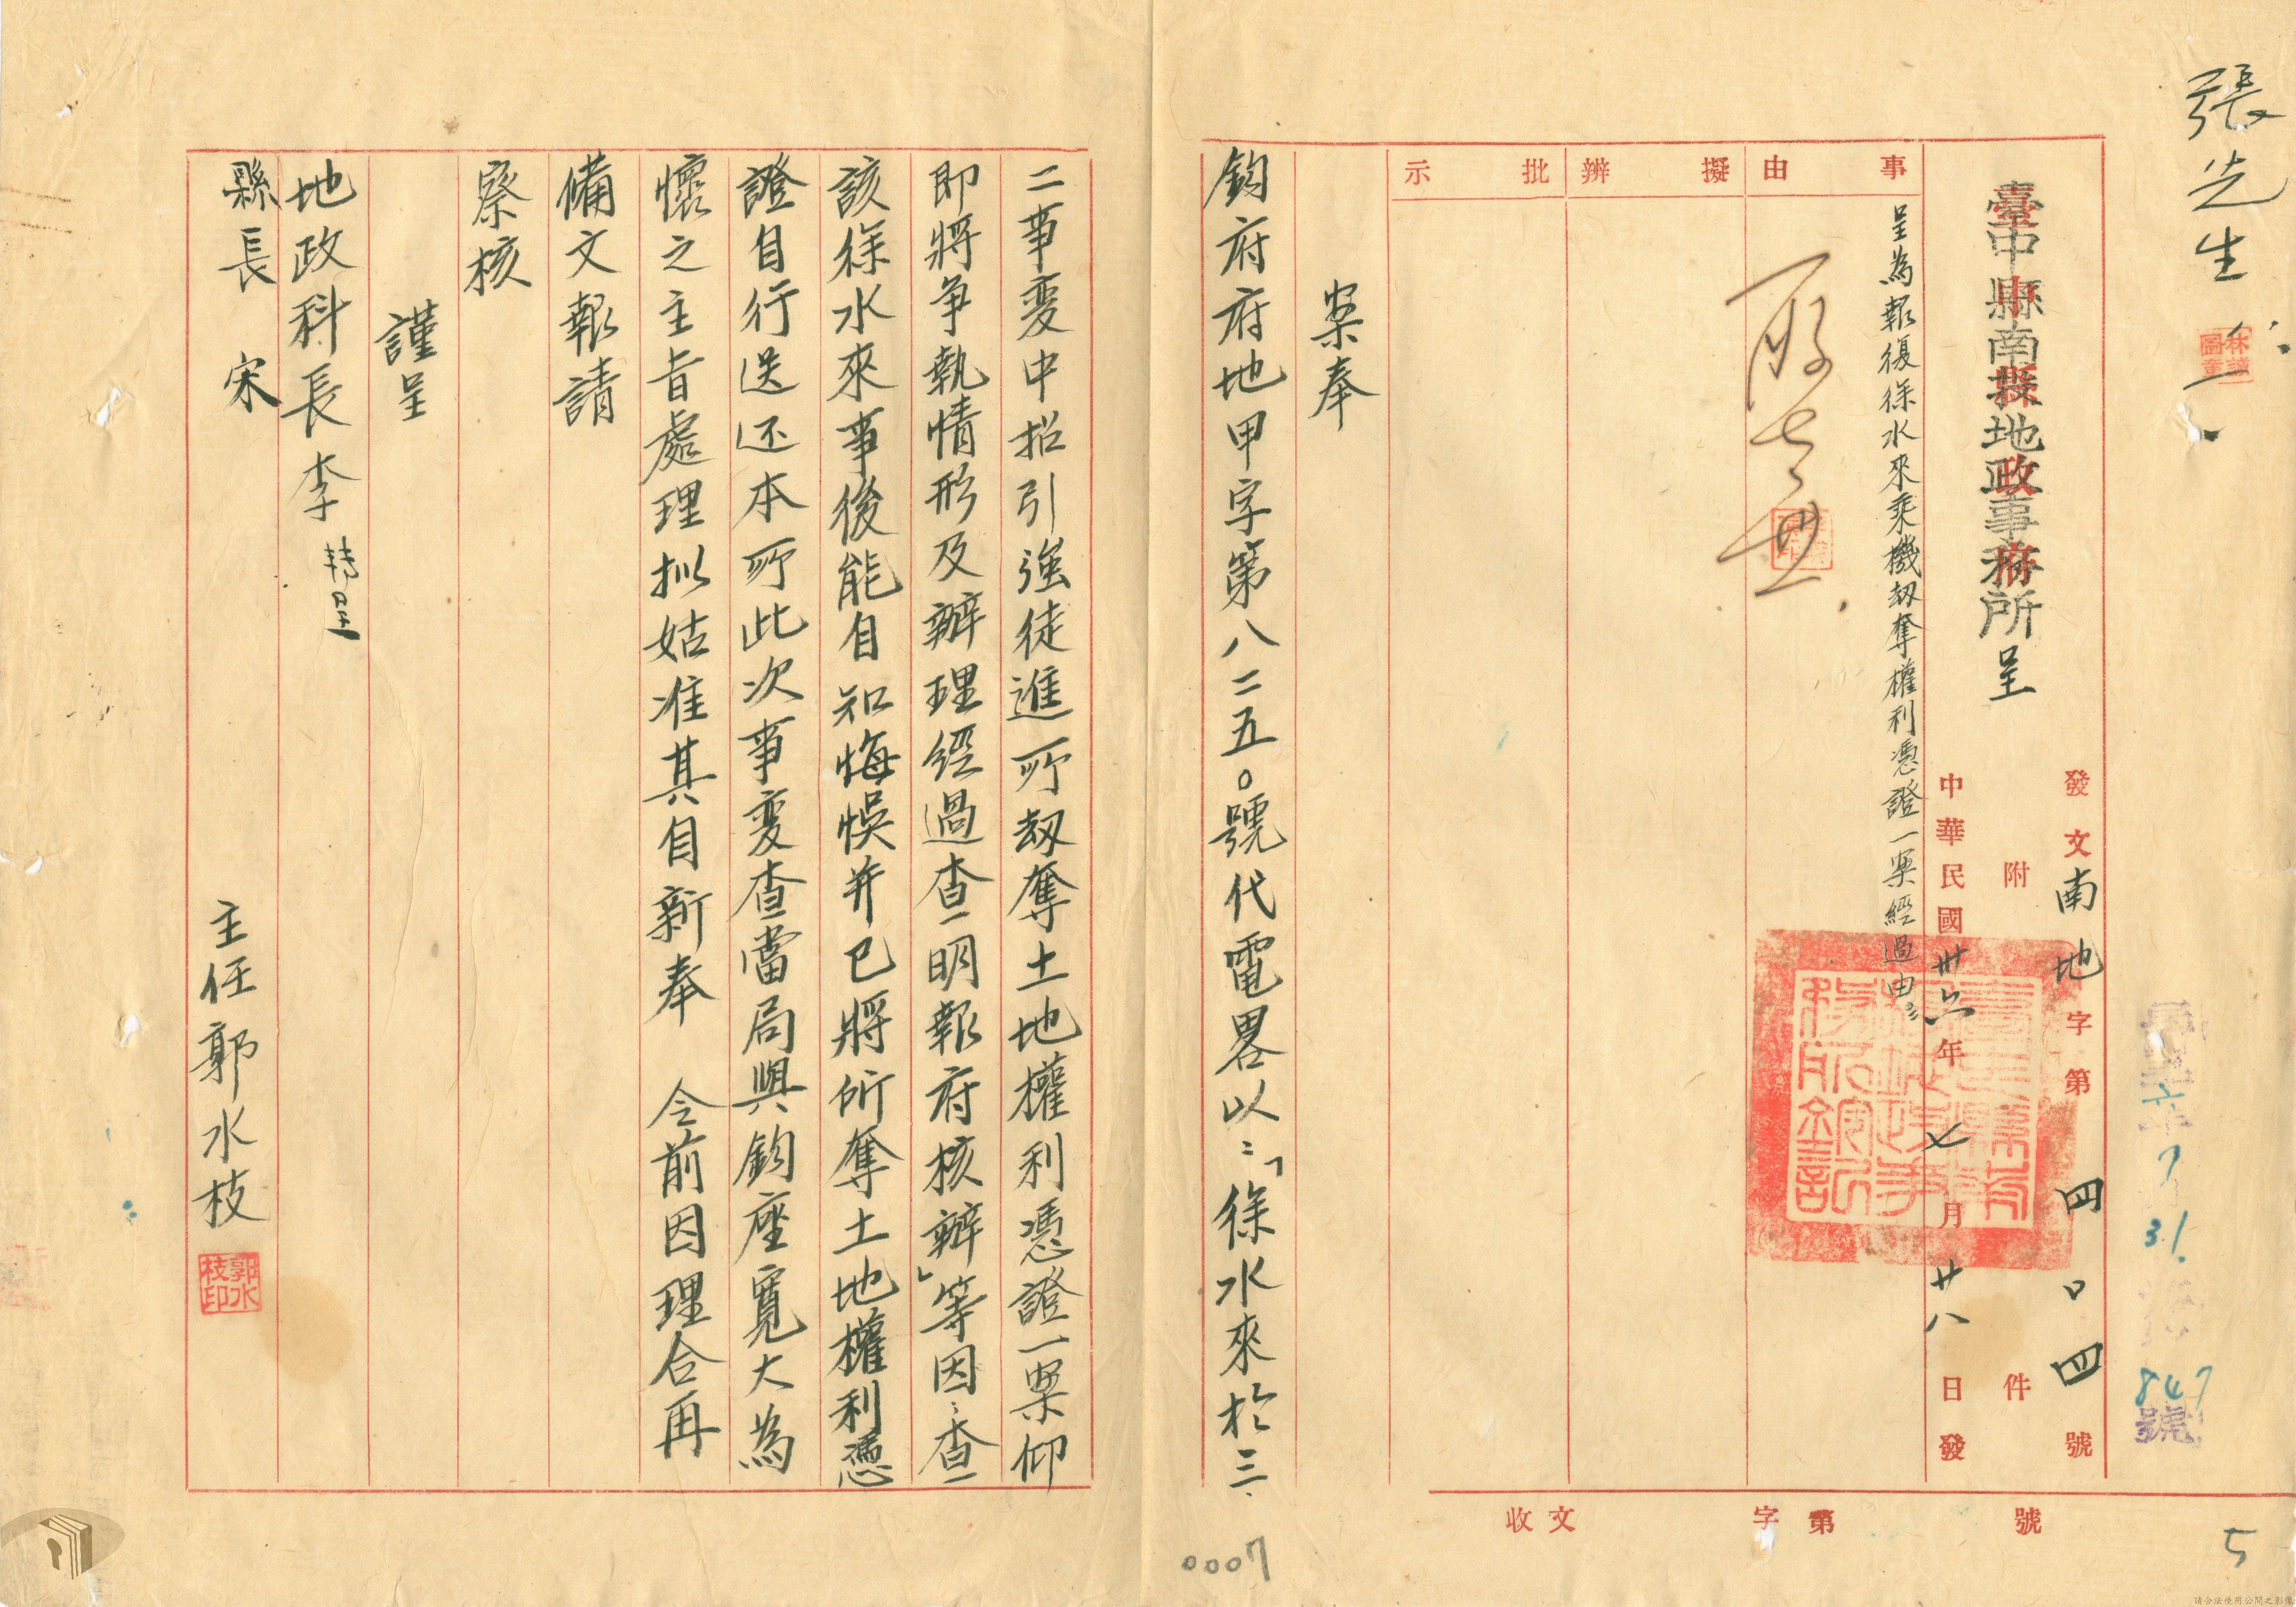 張先生
臺中縣南投地政事務所呈
發文南地字第四〇四號
附件
中華民國卅六年七月廿八日發
事由
擬辦
批示
呈為報復徐水來乘機劫奪權利憑證一案經過由
7 31
847
號
案奉
鈞府府地甲字第八二五〇號代電畧以:「徐水來於三
二事変中招引強徒進所劫奪土地權利憑證一案仰
即將爭執情形及辦理經過查明報府核辦」等因;查
該徐水來事後能自知悔悮并已將所奪土地權利憑
證自行送还本所此次事変查當局與鈞座寬大為
懷之主旨處理拟姑准其自新奉 令前因理合再
備文報請
察核
謹呈
地政科長李 轉呈
縣長 宋
主任郭水枝
郭水枝印
收文 字第 號
0007
5
請合法使用公開之影像